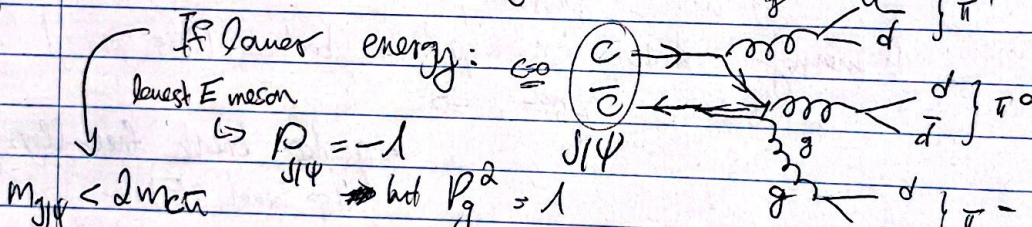 If lower energy:
lowest E meson
↳ P_J/ψ = -1
m_J/ψ < 2m_cū → but P_g² = 1
C
C̄
J/ψ
g
d
} π
d
d̄
} π⁰
g
g
d
} π⁻